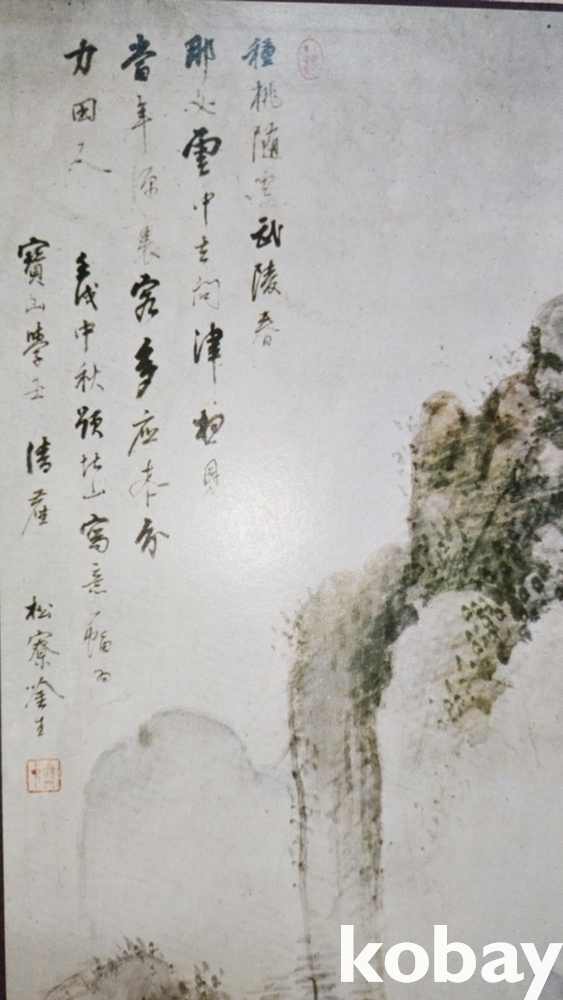 種桃隨處武陵春
那必雲中去問津想見
當年源裏客多應本分
力田人
壬戌中秋題北山寫意一幅爲
寶山學士 清產
松寮 生
kobay